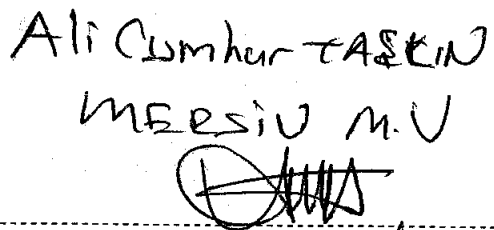 Ali Cumhur TAŞKIN
MERSiN M.V